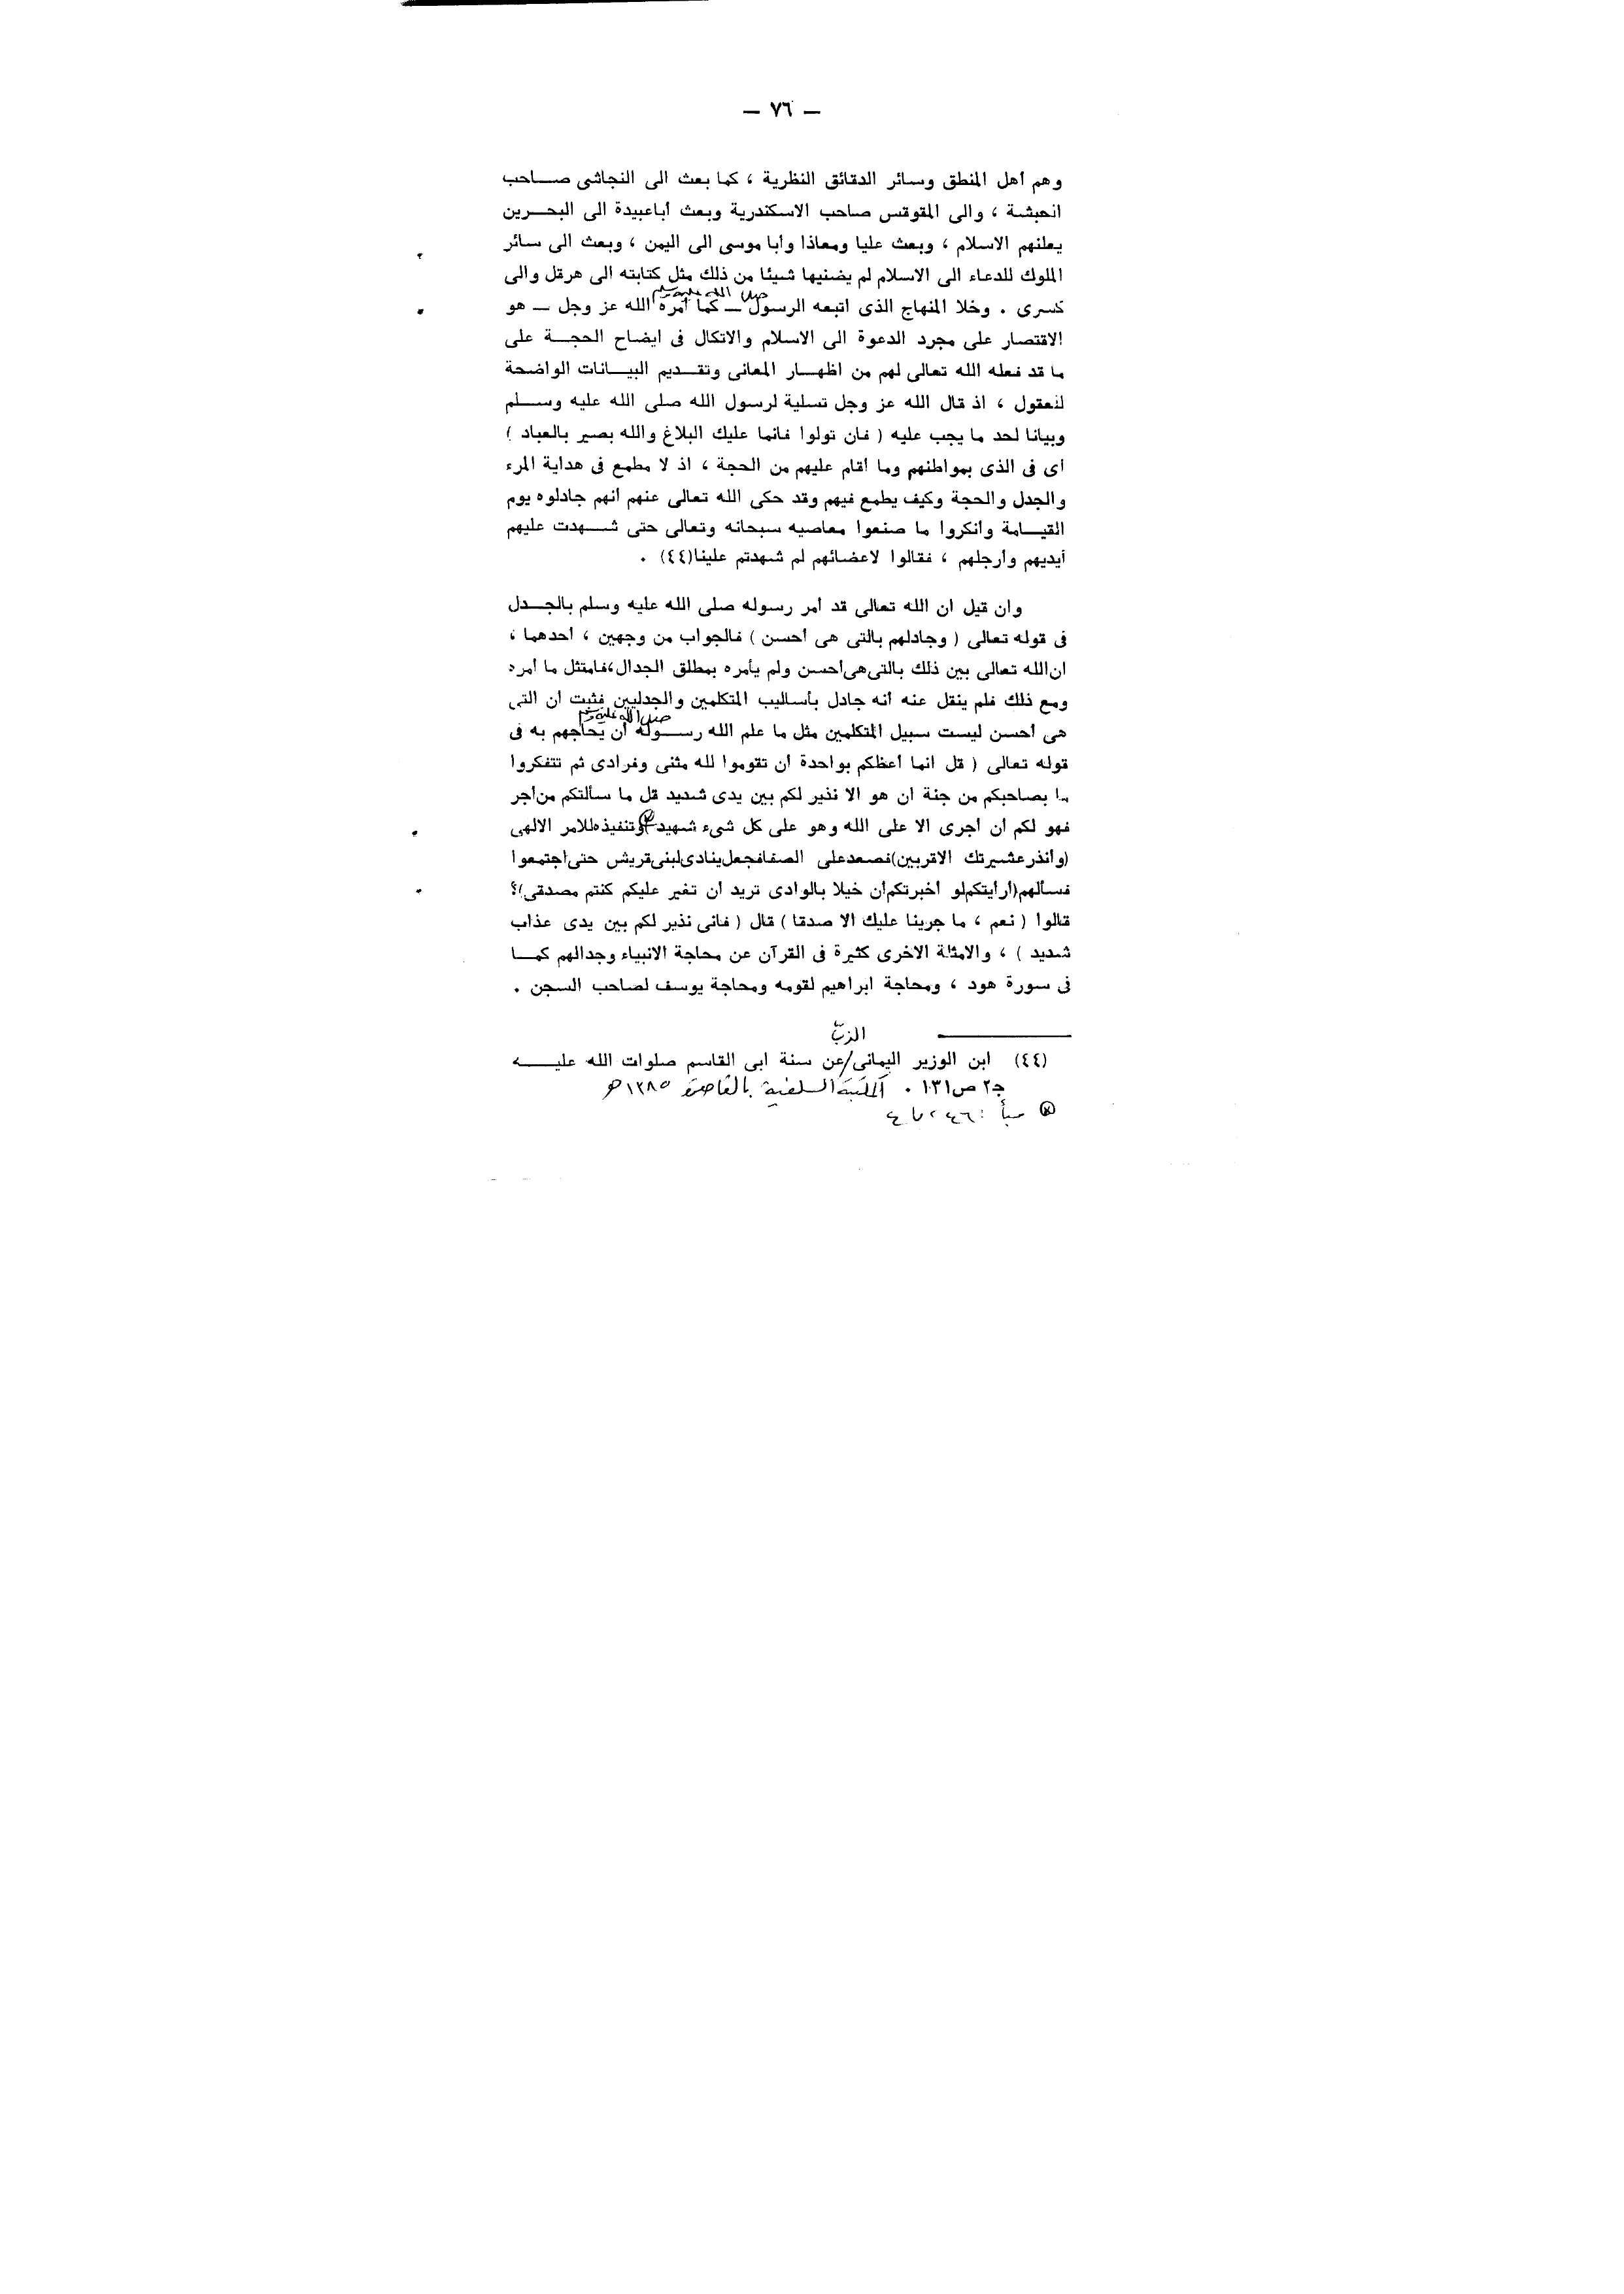 — ٧٦ —
وهم أهل المنطق وسائر الدقائق النظرية ، كما بعث الى النجاشى صاحب
الحبشة ، والى المقوقس صاحب الاسكندرية وبعث أباعبيدة الى البحرين
يعلنهم الاسلام ، وبعث عليا ومعاذا وأبا موسى الى اليمن ، وبعث الى سائر
الملوك للدعاء الى الاسلام لم يضنيها شيئا من ذلك مثل كتابته الى هرقل والى
كسرى . وخلا المنهاج الذى اتبعه الرسول صلى الله عليه وسلم — كما أمره الله عز وجل — هو
الاقتصار على مجرد الدعوة الى الاسلام والاتكال فى ايضاح الحجة على
ما قد فعله الله تعالى لهم من اظهار المعانى وتقديم البيانات الواضحة
للعقول ، اذ قال الله عز وجل تسلية لرسول الله صلى الله عليه وسلم
وبيانا لحد ما يجب عليه ( فان تولوا فانما عليك البلاغ والله بصير بالعباد )
اى فى الذى بمواطنهم وما أقام عليهم من الحجة ، اذ لا مطمع فى هداية المرء
والجدل والحجة وكيف يطمع فيهم وقد حكى الله تعالى عنهم أنهم جادلوه يوم
القيامة وأنكروا ما صنعوا معاصيه سبحانه وتعالى حتى شهدت عليهم
أيديهم وأرجلهم ، فقالوا لاعضائهم لم شهدتم علينا(٤٤) .
وان قيل ان الله تعالى قد أمر رسوله صلى الله عليه وسلم بالجدل
فى قوله تعالى ( وجادلهم بالتى هى أحسن ) فالجواب من وجهين ، أحدهما ،
ان الله تعالى بين ذلك بالتى هى أحسن ولم يأمره بمطلق الجدال، فامتثل ما أمره
ومع ذلك فلم ينقل عنه أنه جادل بأساليب المتكلمين والجدليين فثبت ان التى
هى أحسن ليست سبيل المتكلمين مثل ما علم الله رسوله صلى الله عليه وسلم أن يحاجهم به فى
قوله تعالى ( قل انما أعظكم بواحدة أن تقوموا لله مثنى وفرادى ثم تتفكروا
ما بصاحبكم من جنة ان هو الا نذير لكم بين يدى شديد قل ما سألتكم من أجر
فهو لكم ان أجرى الا على الله وهو على كل شىء شهيد وتنفيذه للامر الالهى
(وأنذر عشيرتك الاقربين) فصعد على الصفا فجعل ينادى لبنى قريش حتى اجتمعوا
فسألهم (أرأيتكم لو أخبرتكم أن خيلا بالوادى تريد أن تغير عليكم كنتم مصدقى)؟
قالوا ( نعم ، ما جربنا عليك الا صدقا ) قال ( فانى نذير لكم بين يدى عذاب
شديد ) ، والامثلة الاخرى كثيرة فى القرآن عن محاجة الانبياء وجدالهم كما
فى سورة هود ، ومحاجة ابراهيم لقومه ومحاجة يوسف لصاحب السجن .
الذبّ
(٤٤) ابن الوزير اليمانى/عن سنة ابى القاسم صلوات الله عليه
ج٢ ص١٣١ . المكتبة السلفية بالقاهرة ١٣٨٥ هـ
سبأ : ٤٦ ، ٤٧